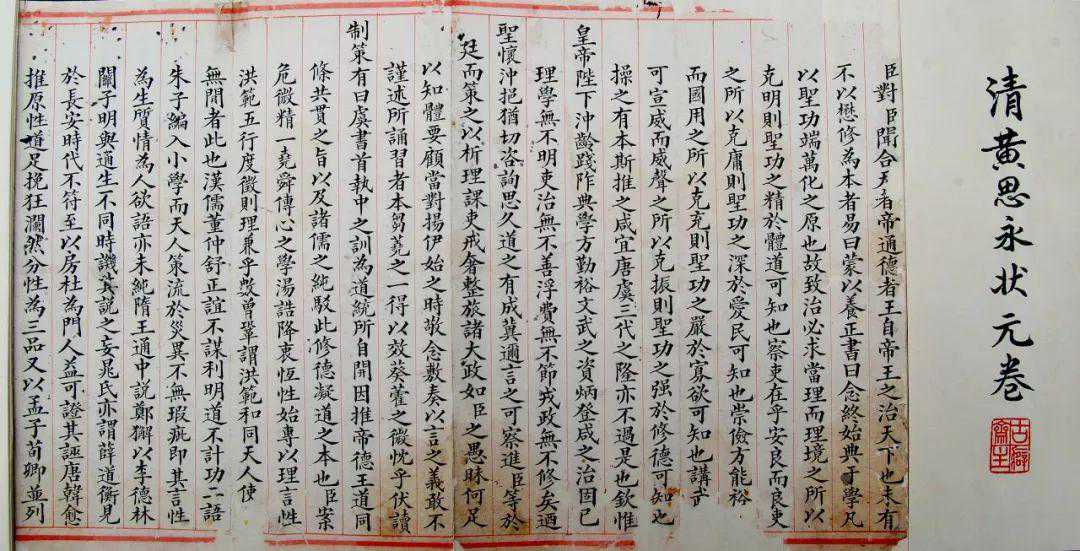 清黃思永狀元卷
古辟齋主
臣對臣聞合天者帝通德者王自帝王之治天下也未有
不以懋修為本者易曰蒙以養正書曰念終始典于學凡
以聖功端萬化之原也故致治必求當理而理境之所以
克明則聖功之精於體道可知也察吏在乎安良而良吏
之所以克庸則聖功之深於愛民可知也崇儉方能裕
而國用之所以克充則聖功之嚴於寡欲可知也講武
可宣威而威聲之所以克振則聖功之强於修德可知也
操之有本斯推之咸宜唐虞三代之隆亦不過是也欽惟
皇帝陛下沖齡踐阼典學方勤裕文武之資炳登咸之治固已
理學無不明吏治無不善浮費無不節戎政無不修矣迺
聖懷沖挹猶切咨詢思久道之有成冀邇言之可察進臣等於
廷而策之以析理課吏戒奢整旅諸大政如臣之愚昧何足
以知體要顧當對揚伊始之時敬念敷奏以言之義敢不
謹述所誦習者本芻蕘之一得以效葵藿之微忱乎伏讀
制策有曰虞書首執中之訓為道統所自開因推帝德王道同
條共貫之旨以及諸儒之純駁此修德凝道之本也臣案
危微精一堯舜傳心之學湯誥降衷恆性始專以理言性
洪範五行度徵則理兼乎數曾鞏謂洪範和同天人使
無間者此也漢儒董仲舒正誼不謀利明道不計功二語
朱子編入小學而天人策流於災異不無瑕疵即其言性
為生質情為人欲語亦未純隋王通中說鄭獬以李德林
關子明與通生不同時譏其說之妄晁氏亦謂薛道衡見
於長安時代不符至以房杜為門人益可證其誣唐韓愈
推原性道足挽狂瀾然分性為三品又以孟子荀卿並列